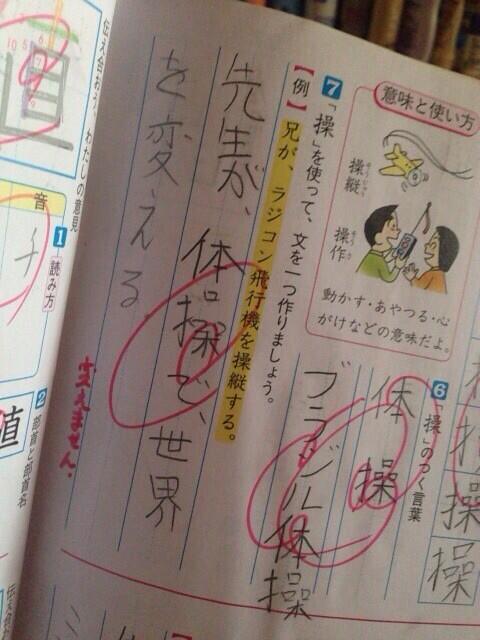 意味と使い方
操縦
そうじゅう
操作
そうさ
動かす・あやつる・心
がけなどの意味だよ。
6 「操」のつく言葉
体操
ブラジル体操
操
操
7 「操」を使って、文を一つ作りましょう。
【例】兄が、ラジコン飛行機を操縦する。
先生が、体操で、世界
を変える。
変えません。
伝え合おう、わたしの意見
直
音
チ
1 読み方
2 部首と部首名
値